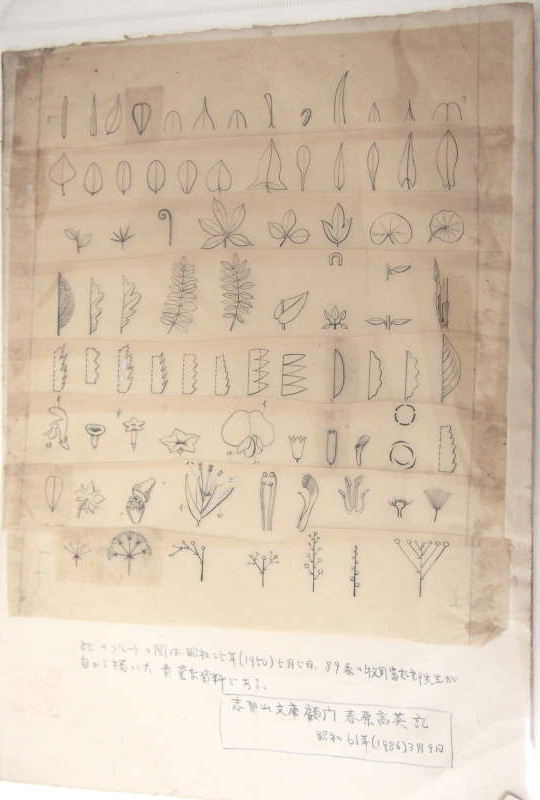 此のプレートの図は昭和25年(1950)5月5日、89歳の牧野富太郎先生が
自から描いた貴重な資料である。
志賀山文庫 顧問 春原高英 記
昭和61年(1986)3月9日